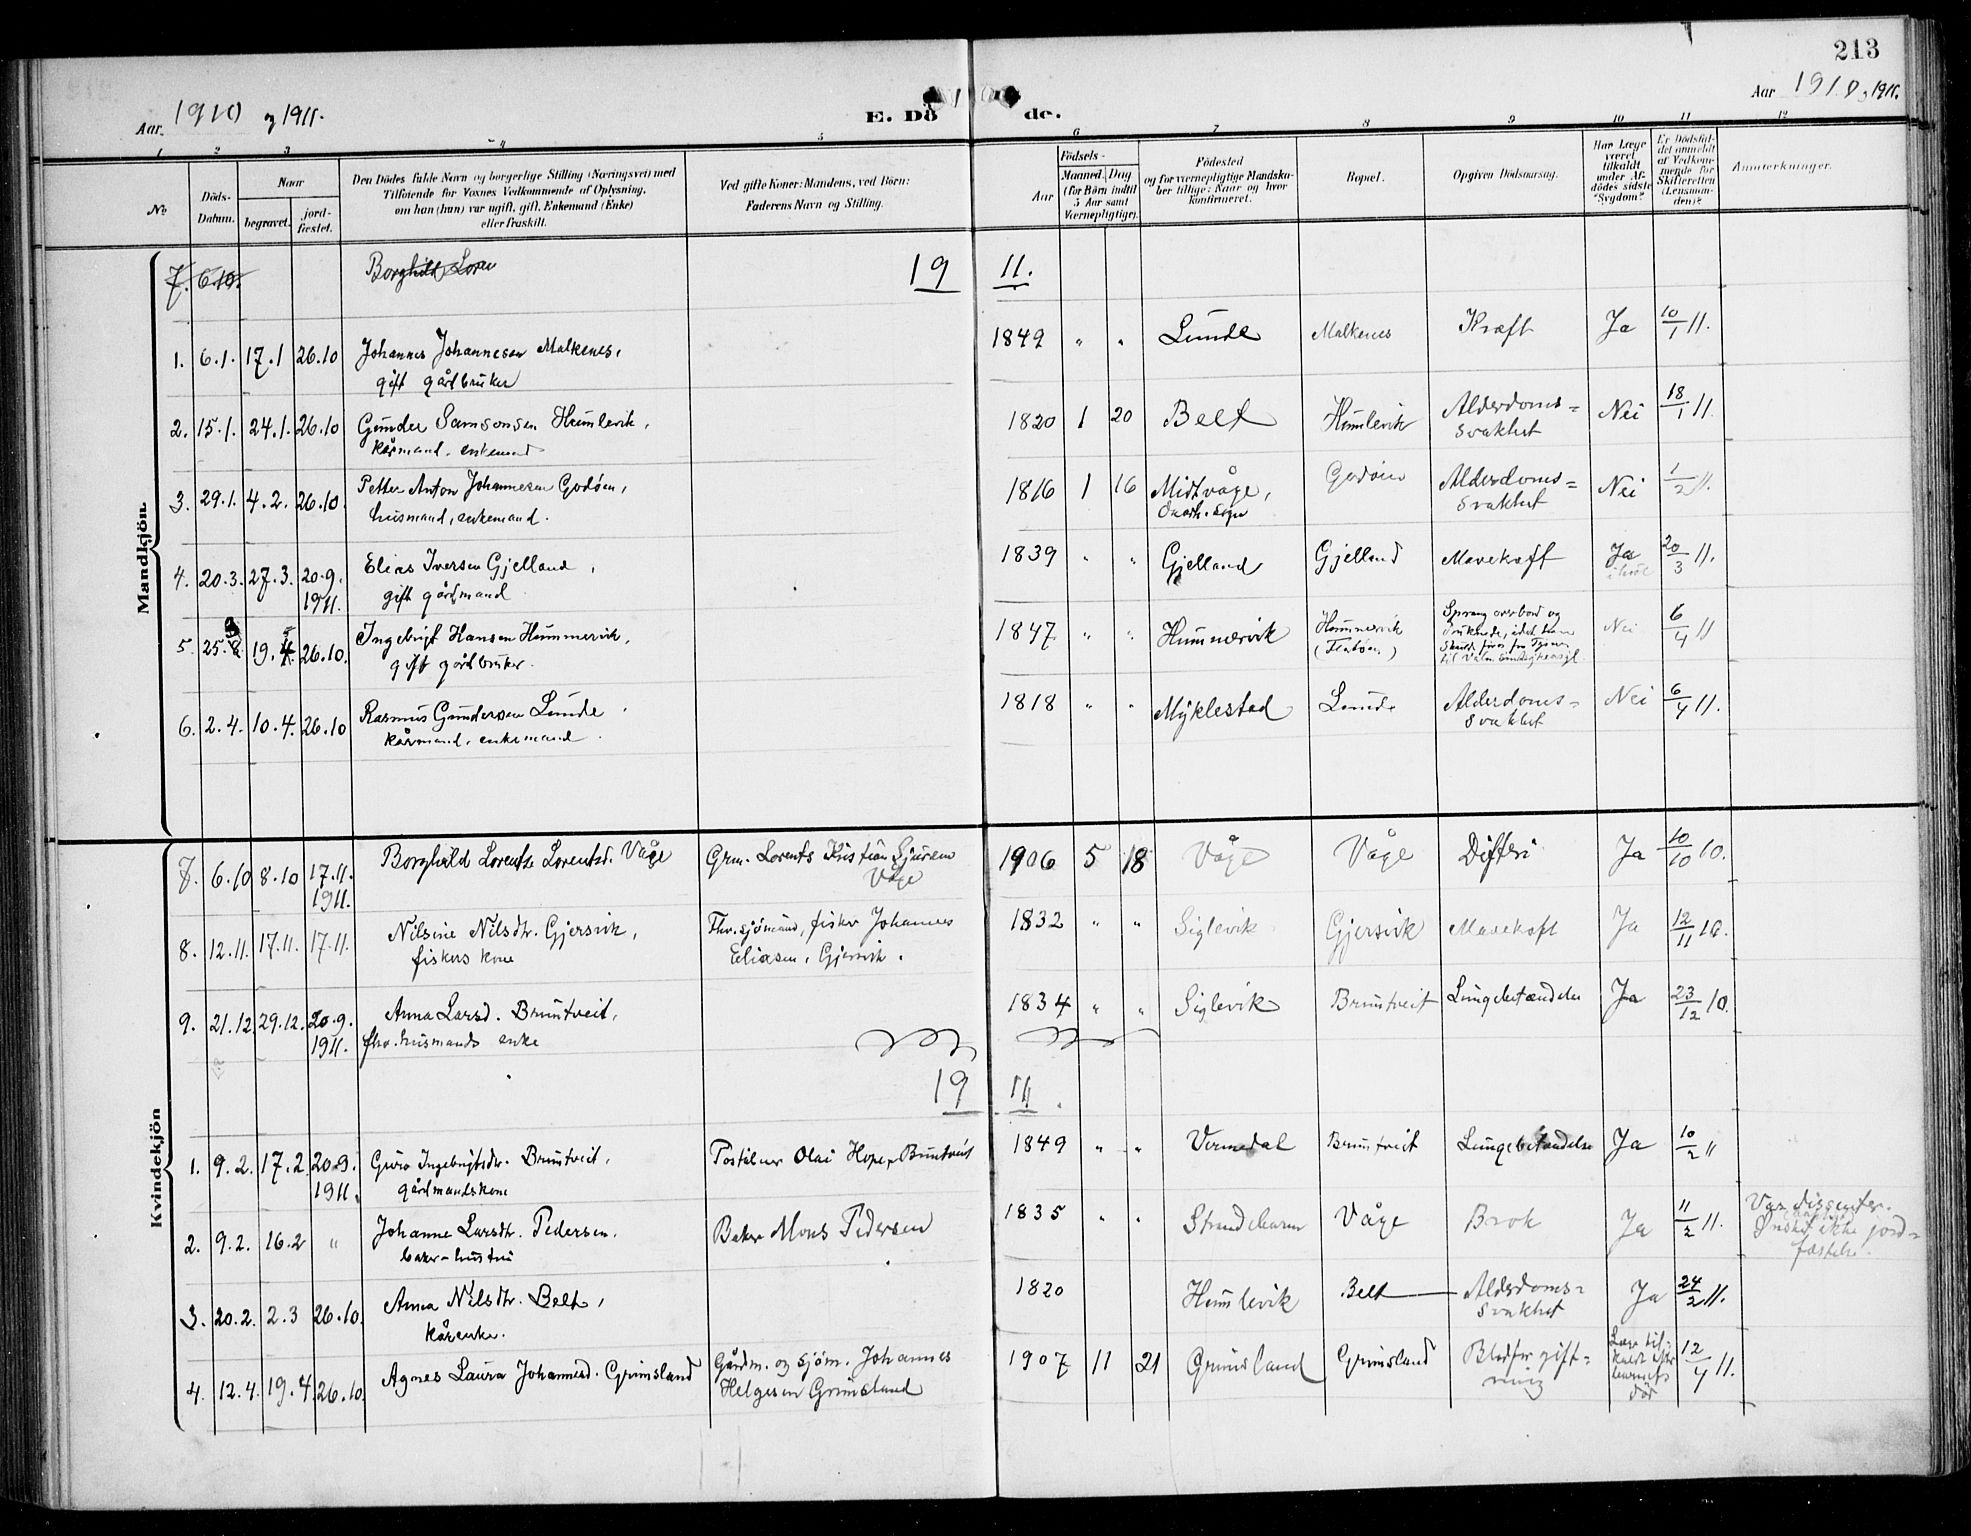 213
Aar 1910 og 1911.
E. Dö de.
Aar 1910 og 1911.
1 2 3 4 5 6 7 8 9 10 11 12
No
Döds-Datum.
Naar
begravet.
jord-fæstet.
Den Dödes fulde Navn og borgerlige Stilling (Næringsvei) med
Tilföiende for Voxnes Vedkommende af Oplysning,
om han (hun) var ugift, gift, Enkemand (Enke)
eller fraskilt.
Ved gifte Koner: Mandens, ved Börn:
Faderens Navn og Stilling.
Födsels-
Aar
Maaned. Dag
(for Börn indtil
5 Aar samt
Værnepligtige).
Födested
og for værnepligtige Mandska-
ber tillige: Naar og hvor
konfirmeret.
Bopæl.
Opgiven Dödsaarsag.
Har Læge
været
tilkaldt
under Af-
dödes sidste
Sygdom?
Er Dödsfal-
det anmeldt
af Vedkom-
mende for
Skifteretten
(Lensman-
den)?
Anmærkninger.
Mandkjön.
7. 6.10. Borghild Loren
19 11.
1. 6.1. 17.1 26.10 Johannes Johannesen Malkenes, 1849 " " Lunde Malkenes Kræft Ja 10/1 11.
gift gårdbruker
2. 15.1. 24.1. 26.10 Gunder Samsonsen Humlevik, 1820 1 20 Belt Humlevik Alderdoms= Nei 18/1 11.
kårmand. enkemand svakhet
3. 29.1. 4.2. 26.10. Petter Anton Johannesen Godøen, 1816 1 16 Midtvåge, Godøen Alderdoms= Nei 1/2 11.
husmand, enkemand. svakhet
4. 20.3. 27.3. 20.9. Elias Iversen Gjelland, 1839 " " Gjelland Gjelland Mavekræft Ja 20/3 11.
1911. gift gårdmand
5. 25. 19. 26.10. Ingebrigt Hansen Hummervik, 1847 " " Hummervik Hummervik Sprang overbord og Nei 6/4 11
gift gårdbruker. druknede, idet han
6. 2.4. 10.4. 26.10 Rasmus Gundersen Lunde 1818 " " Myklestad Lunde Alderdoms= Nei 6/4 11.
kårmand, enkemand. svakhet
Kvindekjön
7. 6.10 8.10 17.11. Borghild Lorentse Lorentsd. Våge Grm. Lorents Kristian Sjursen 1906 5 18 Våge Våge Difteri Ja 10/10 10.
1911. Våge
8. 12.11. 17.11. 17.11. Nilsine Nilsdtr. Gjersvik, Fhv. sjømand, fisker Johannes 1832 " " Siglevik Gjersvik Mavekræft Ja 12/11 10.
fiskers kone Eliasen, Gjersvik.
9. 21.12. 29.12. 20.9. Anna Larsd. Bruntveit, 1834 " " Siglevik Bruntveit Lungebetændelse Ja 23/12 10.
1911. fhv. husmands enke
19 11.
1. 9.2. 17.2. 20.9. Guro Ingebrigtsdtr. Bruntveit, Poståbner Olai Hope, Bruntveit 1849 " " Vermedal Bruntveit Lungebetændelse Ja 10/2 "
1911. gårdmandskone
2. 9.2. 16.2 " Johanne Larsdtr. Pedersen. Baker Mons Pedersen 1835 " " Strandebarm Våge Brok Ja 11/2 11. Var dissenter.
baker-hustru Ønsket ikke jord=
fæstelse.
3. 20.2. 2.3 26.10. Anna Nilsdtr. Belt, 1820 Humlevik Belt Alderdoms= Ja 24/2 11.
kårenke. svakhet
4. 12.4. 19.4. 26.10. Agnes Laura Johannesd. Grimsland Gårdm. og sjøm. Johannes 1907 11 21 Grimsland Grimsland Blodforgift= Læge til- 12/4 11.
Helgesen Grimsland ning kaldt efter
barnets
død